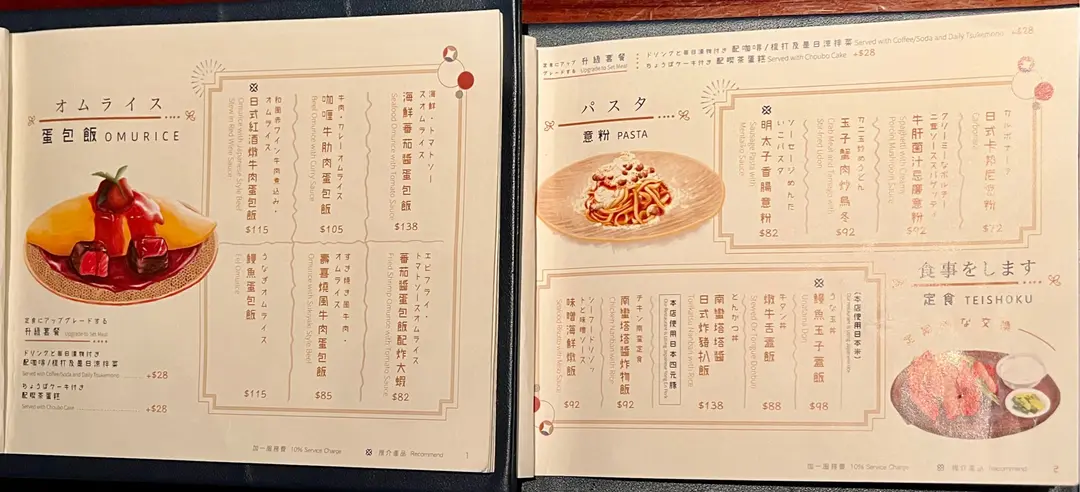 オムライス
蛋包飯 OMURICE
海鮮・トマトソー
スオムライス
海鮮蕃茄醬蛋包飯
Seafood Omurice with Tomato Sauce
$138
牛肉・カレーオムライス
咖喱牛肋肉蛋包飯
Beef Omurice with Curry Sauce
$105
和風赤ワイン牛肉煮込み・
オムライス
日式紅酒燉牛肉蛋包飯
Omurice with Japanese Style Beef
Stew in Red Wine Sauce
$115
エビフライ・
トマトソースオムライス
蕃茄醬蛋包飯配炸大蝦
Fried Shrimp Omurice with Tomato Sauce
$82
すき焼き風牛肉・
オムライス
壽喜燒風牛肉蛋包飯
Omurice with Sukiyaki Style Beef
$85
うなぎオムライス
鰻魚蛋包飯
Eel Omurice
$115
定食にアップグレードする
升級套餐 Upgrade to Set Meal
ドリンクと毎日漬物付き
配咖啡/梳打及是日漬拼菜
Served with Coffee/Soda and Daily Tsukemono +$28
ちょうぼケーキ付き
配喫茶蛋糕
Served with Choubo Cake +$28
加一服務費 10% Service Charge
推介產品 Recommend
1
定食にアップ
グレードする
升級套餐
Upgrade to Set Meal
ドリンクと毎日漬物付き 配咖啡/梳打及是日漬拼菜 Served with Coffee/Soda and Daily Tsukemono +$28
ちょうぼケーキ付き 配喫茶蛋糕 Served with Choubo Cake +$28
パスタ
意粉 PASTA
カルボナーラ
日式卡拉尼意粉
Carbonara
$72
クリーミーなポルチー
ニ茸ソーススパゲッティ
牛肝菌汁忌廉意粉
Spaghetti with Creamy
Porcini Mushroom Sauce
$92
カニ玉炒めうどん
玉子蟹肉炒烏冬
Crab Meat and Tamago with
Stir-fried Udon
$92
ソーセージめんた
いこパスタ
明太子香腸意粉
Sausage Pasta with
Mentaiko Sauce
$82
食事をします
定食 TEISHOKU
【本店使用日本米】
うな玉丼
鰻魚玉子蓋飯
Unatama Don
$98
牛タン丼
燉牛舌蓋飯
Stewed Ox Tongue Donburi
$88
とんかつ丼
南蠻塔塔醬
日式炸豬扒飯
Tonkatsu Nanban with Rice
$138
【本店使用日本四元豚】
チキン南蛮定食
南蠻塔塔醬炸物飯
Chicken Nanban with Rice
$92
シーフードリゾッ
トと味噌ソース
味噌海鮮燉飯
Seafood Risotto with Miso Sauce
$92
加一服務費 10% Service Charge
推介產品 Recommend
2